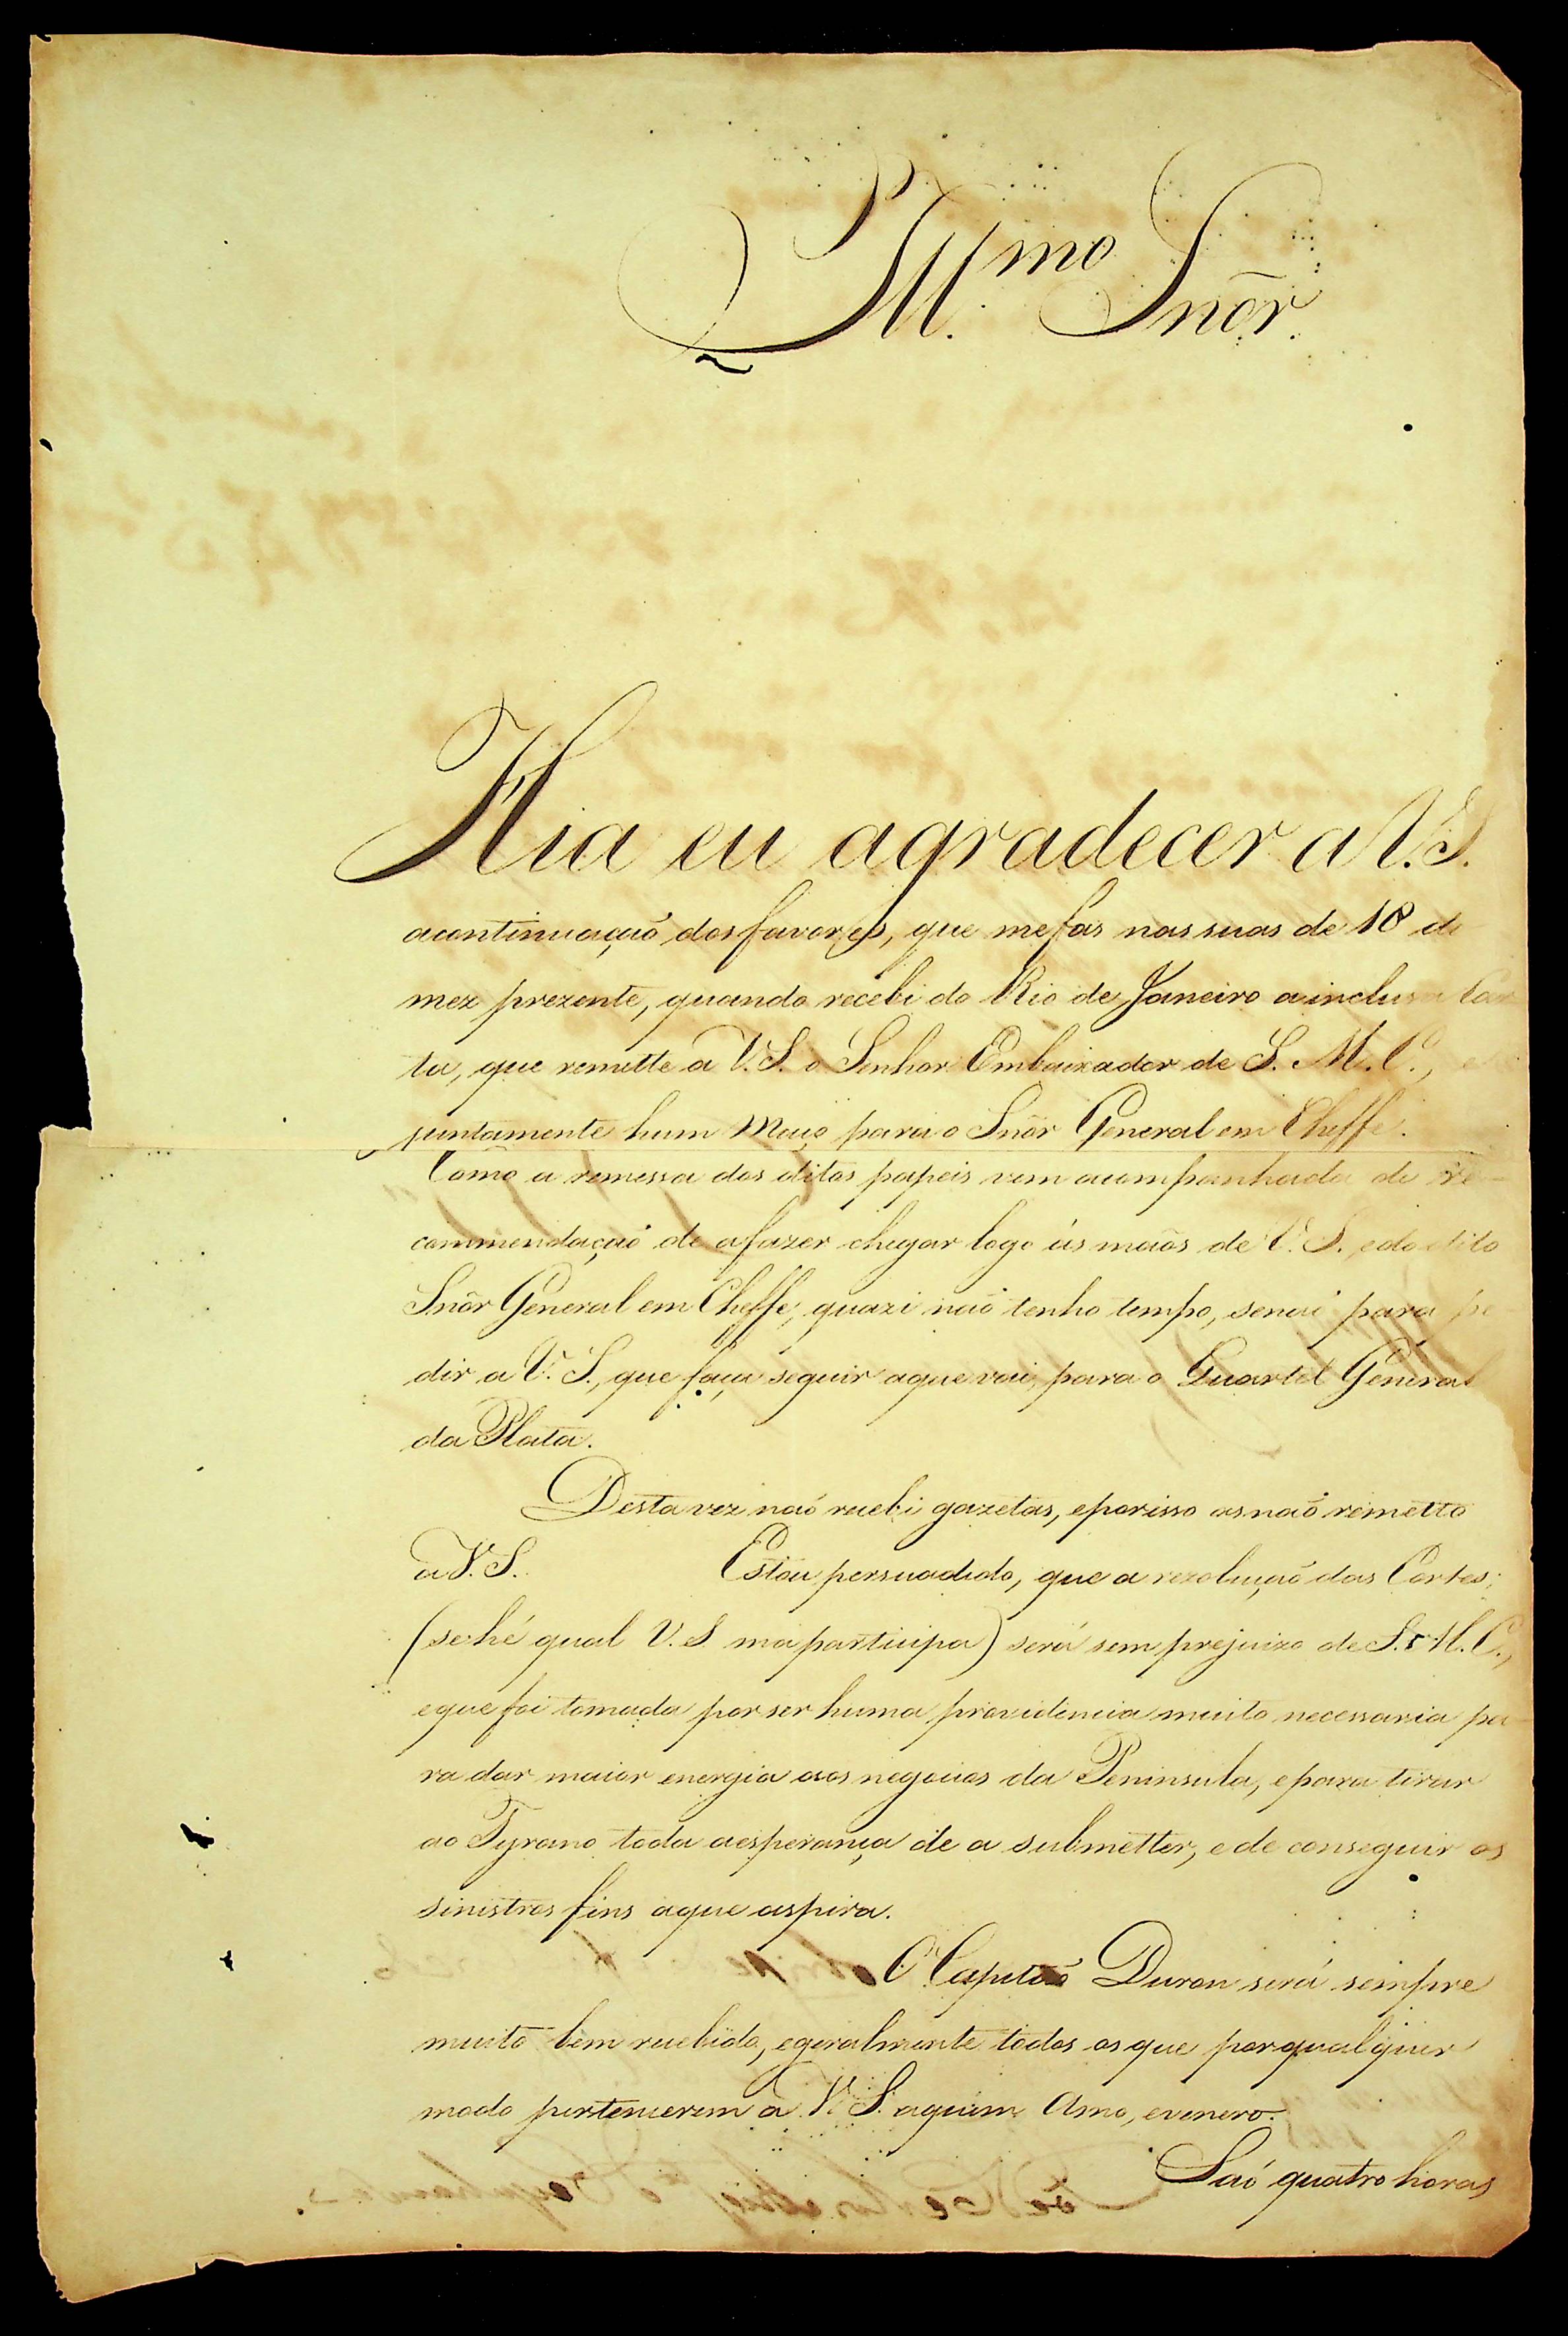 Ill.mo Snõr.
Hia eu agradecer a V. S.
a continuaçaõ dos favores, que me fas nas suas de 18 do
mez prezente, quando recebi do Rio de Janeiro a inclusa Car
ta, que remette a V. S. o Senhor Embaixador de S. M. C., e
juntamente hum Maço para o Snõr General em Cheffe.
Como a remessa dos ditos papeis vem acompanhada de re-
commendaçaõ de a fazer chegar logo ás maõs de V. S. e do dito
Snõr General em Cheffe, quazi naõ tenho tempo, senaõ para pe
dir a V. S., que faça seguir a que vai para o Quartel General
da Plata.
Desta vez naõ recebi gazetas, e por isso as naõ remetto
a V. S. Estou persuadido, que a rezoluçaõ das Cortes,
(se hé qual V. S. ma participa) será sem prejuizo de S. M. C.,
e que foi tomada por ser huma providencia muito necessaria pa
ra dar maior energia aos negocios da Peninsula, e para tirar
ao Tyrano toda a esperança de a submetter, e de conseguir os
sinistros fins a que aspira.
O Capitaõ Duran será sempre
muito bem recebido, e geralmente todos os que por qualquer
modo pertencerem a V. S. a quem Amo, e venero.
Saõ quatro horas